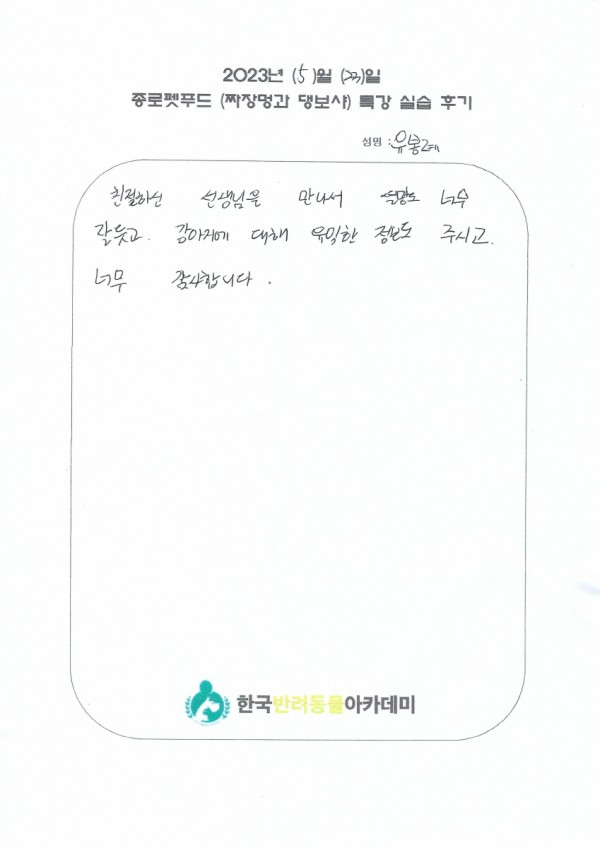 2023년 (5)월 (23)일
종로펫푸드 (짜장멍과 댕보샤) 특강 실습 후기
성명 : 유봉례
친절하신 선생님을 만나서 설명도 너무
잘듣고. 강아지에 대해 유익한 정보도 주시고.
너무 감사합니다.
한국반려동물아카데미